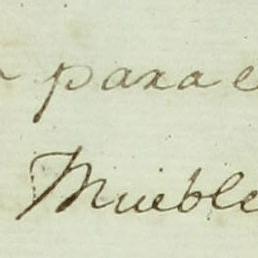 para e
Mueble